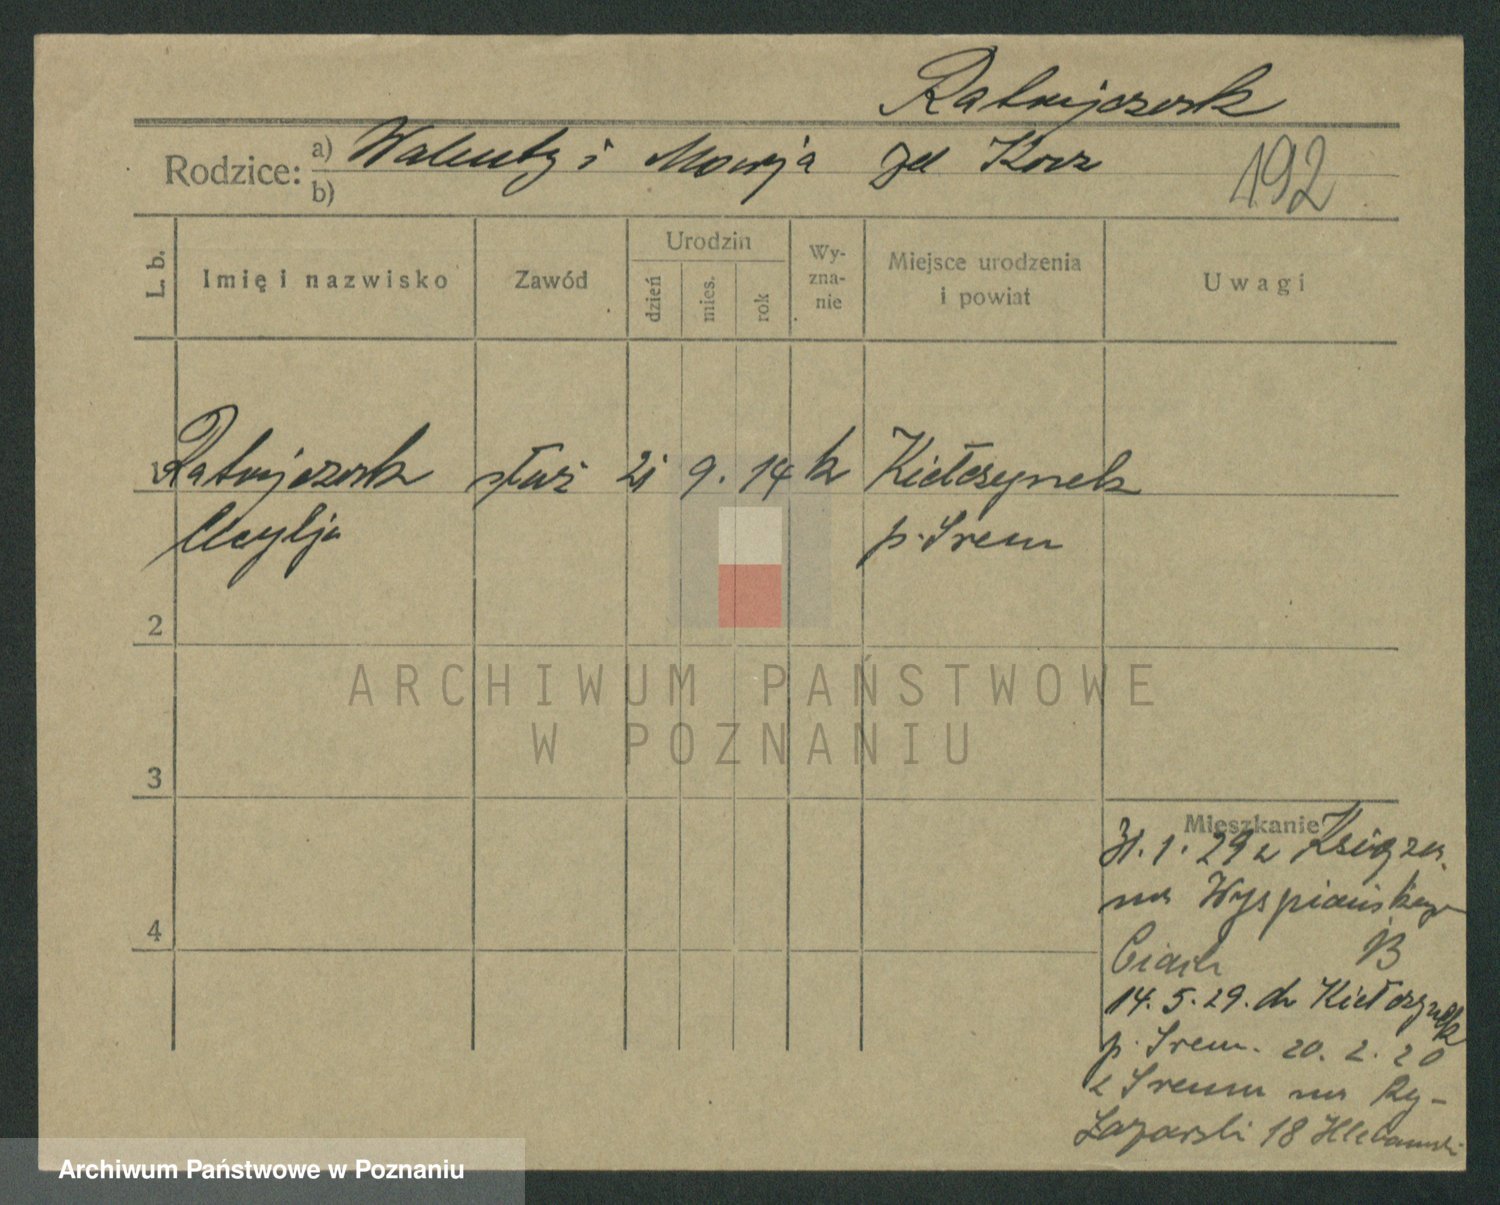 Ratajczak
Rodzice: a) Walenty i Marja zd Korz
b)
192
L. b.
Imię i nazwisko
Zawód
Urodzin
dzień
mies.
rok
Wy-
zna-
nie
Miejsce urodzenia
i powiat
Uwagi
1 Ratajczak służ 21 9. 14 k Kiełczynek
p. Srem
2
ARCHIWUM PAŃSTWOWE
W POZNANIU
3
Mieszkanie
31. 1. 29 z
na Wyspiańskiego
Ciach 13
4
14. 5. 29. do Kiełczynek
p. Srem. 20. 2. 20
z Sremu na Ry-
Łazarski 18
Archiwum Państwowe w Poznaniu